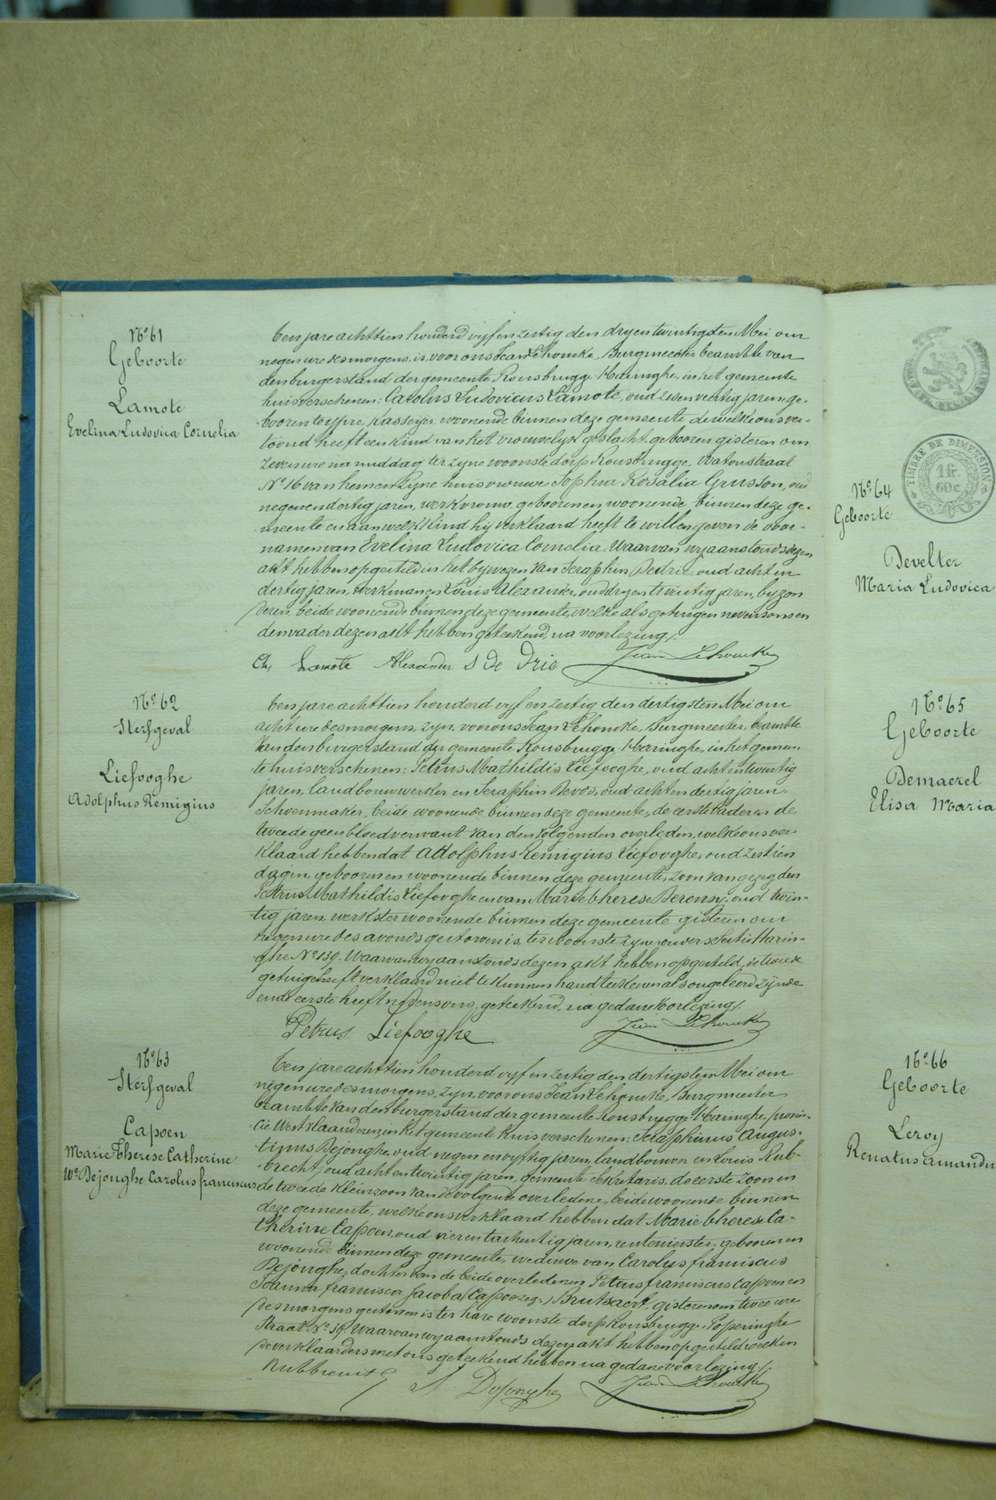 N° 61
Geboorte
Lamote
Evelina Ludovica Cornelia
Een jare achttien honderd vyf en zestig den dry en twintigsten Mei om
negen ure des morgens, is voor ons Jean Lehoucke Burgmeester beambte van
den burgerstand der gemeente Rousbrugge Haringhe, in het gemeente
huis verschenen: Carolus Ludovicus Lamote, oud zeven veertig jaren, ge-
boren te Ypre, kasseyer, woonende binnen deze gemeente, de welke ons ver-
toond heeft een kind van het vrouwelyk geslacht, geboren gisteren om
zeven ure na middag ter zyne woonste dorp Rousbrugge, Watoustraat
N° 16 van hem en zyne huisvrouwe Sophia Rosalia Grusson, oud
negen en dertig jaren, werkvrouw, geboren en woonende binnen deze ge-
meente en aan welk kind hy verklaard heeft te willen geven de voor-
namen van Evelina Ludovica Cornelia. Waarvan wy aanstonds dezen
akt hebben opgesteld in het bywezen van Seraphin Dedrie, oud acht en
dertig jaren, werkman en Louis Alexander, oud dry en twintig jaren, byzon
deren, beide woonende binnen deze gemeente, welke als getuigen nevens ons en
den vader dezen akt hebben geteekend, na voorlezing.
Ch. Lamote Alexander S De Drie Jean Lehoucke
N° 62
Sterfgeval
Liefooghe
Adolphus Remigius
Een jare achttien honderd vyf en zestig den dertigsten Mei om
acht ure des morgens, zyn voor ons Jean Lehoucke, Burgmeester, beambte
van den burgerstand der gemeente Rousbrugge Haringhe, in het gemeen
te huis verschenen: Petrus Mathildis Liefooghe, oud acht en twintig
jaren, landbouwwerker en Seraphin Devos, oud acht en dertig jaren
Schoenmaker, beide woonende binnen deze gemeente, de eerste vader en de
tweede geen bloedverwant van den volgenden overleden, welke ons ver-
klaard hebben dat Adolphus Remigius Liefooghe, oud zestien
dagen, geboren en woonende binnen deze gemeente, zoon van gezegden
Petrus Mathildis Liefooghe en van Marie Therese Berens, oud twin-
tig jaren, werkster woonende binnen deze gemeente gisteren om
negen ure des avonds gestorven is, ter woonste zyner ouders Sectie Harin-
ghe N° 139. Waarvan wy aanstonds dezen akt hebben opgesteld, de tweede
getuige heeft verklaard niet te kunnen handteekenen als ongeleerd zynde
en de eerste heeft nevens ons geteekend, na gedane voorlezing.
Petrus Liefooghe Jean Lehoucke
N° 63
Sterfgeval
Capoen
Marie Therese Catherine
We Dejonghe Carolus franciscus
Een jare achttien honderd vyf en zestig den dertigsten Mei om
negen ure des morgens, zyn voor ons Jean Lehoucke, Burgmeester
beambte van den burgerstand der gemeente Rousbrugge Haringhe, provin-
cie Westvlaanderen in het gemeente huis verschenen: Seraphinus Augus-
tinus Dejonghe, oud negen en vyftig jaren, landbouwer en Louis Rub-
brecht, oud acht en twintig jaren, gemeente sekretaris, de eerste zoon en
de tweede kleinzoon van de volgende overledene, beide woonende binnen
deze gemeente, welke ons verklaard hebben dat Marie Therese Ca-
therine Capoen, oud vier en tachentig jaren, rentenierster, geboren en
woonende binnen deze gemeente, weduwe van Carolus franciscus
Dejonghe, dochter van de beide overledenen Petrus franciscus Capoen en
Joanna francisca Jacoba Brutsaert, gisteren om twee ure
des morgens gestorven is ter hare woonste dorp Rousbrugge, Poperinghe
straat N° 38. Waarvan wy aanstonds dezen akt hebben opgesteld welken
de verklaarders met ons geteekend hebben na gedane voorlezing.
Rubbrecht S Dejonghe Jean Lehoucke
TIMBRE DE DIMENSION
1 fr.
60 c.
N° 64
Geboorte
Develter
Maria Ludovica
N° 65
Geboorte
Demaerel
Elisa Maria
N° 66
Geboorte
Leroy
Renatus amandus